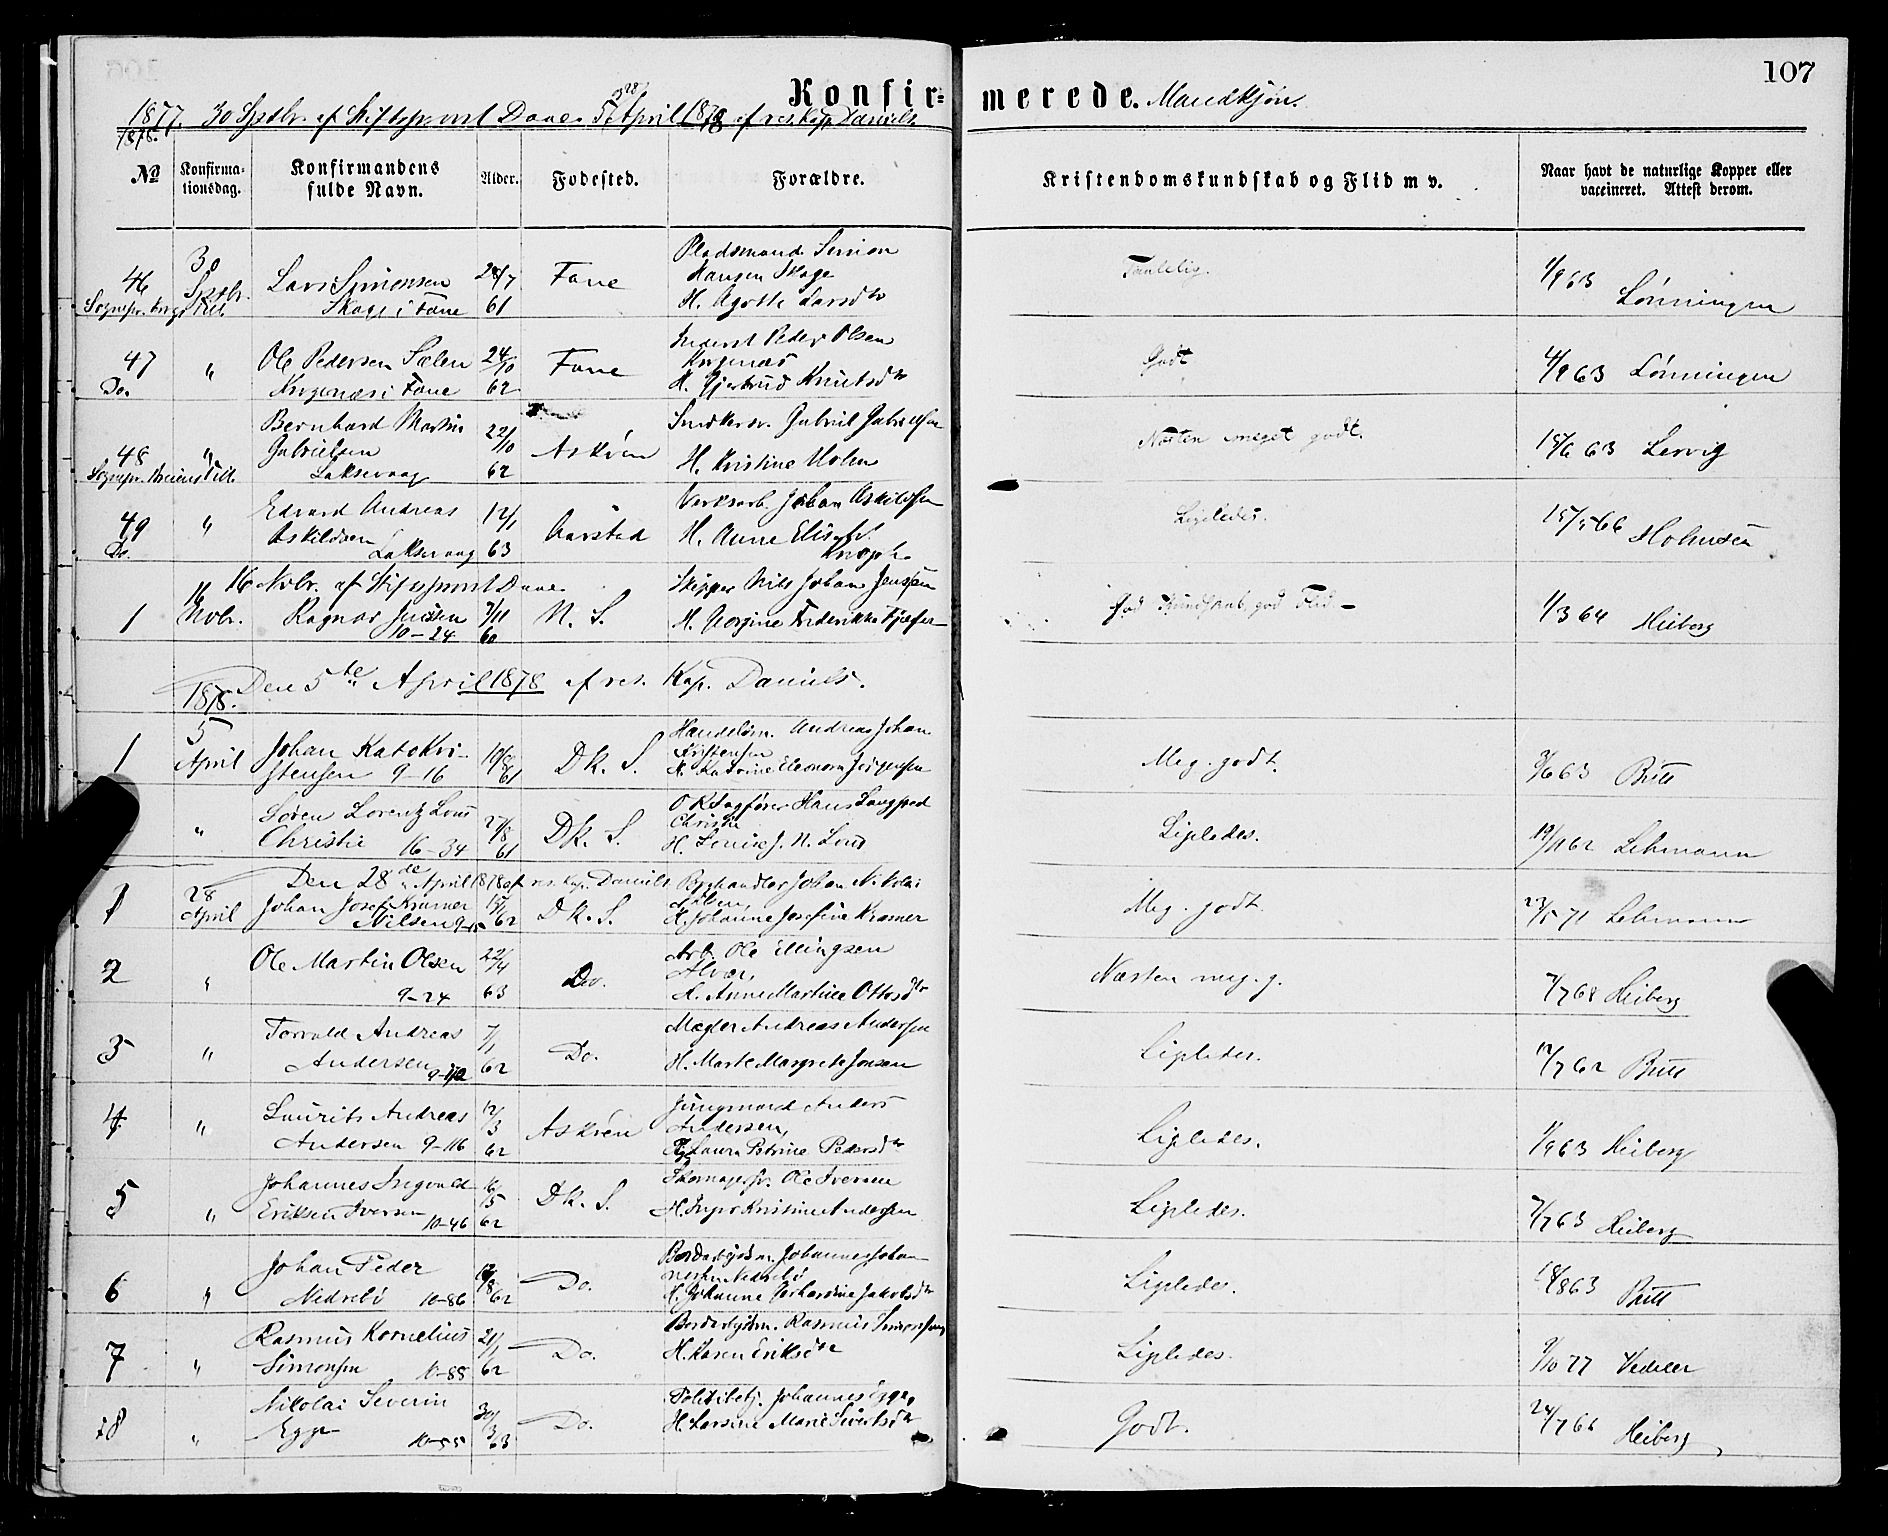 107
Konfirmerede. Mandkjøn.
1877 30 Sptbr. af Stiftsprovst Daae. 5 og 28 April 1878 af res. Kap. Daniels.
1878.
№ Konfirmationsdag. Konfirmandens fulde Navn. Alder. Fodested. Forældre. Kristendomskundskab og Flid m v. Naar havt de naturlige Kopper eller vaccineret. Attest derom.
46 30 Sptbr. Lars Simonsen 28/7 61 Fane Pladsmand Simon
Skage i Fane Hansen Skage
H. Agathe Larsdtr Taalelig. 4/9 63 Lønningen
47 " Ole Pedersen Sælen 24/10 62 Fane Inderst Peder Olsen
Krogenæs i Fane Krogenæs
Do. H. Gjertrud Knutsdtr Godt 4/9 63 Lønningen
48 " Bernhard Martin 22/10 62 Askøen Gabriel Gabrielsen
Gabrielsen
Laksevaag H. Kristine Holm Næsten meget godt. 18/6 63 Lervig
49 " Edvard Andreas 12/1 63 Aarstad Verksarb. Johan Askildsen
Do. Askildsen Laksevaag H. Anne Elisab. Ligeledes. 15/5 66
16 Novbr. af Stiftsprovst Daae.
1 16 Novbr. Ragnar Jenssen 7/11 60 N. S. Skipper Nils Johan Jenssen
10-24 H. Georgine Frederikke God Kundskab, god Flid 1/3 64 Heiberg
1878. Den 5te April 1878 af res. Kap. Daniels.
1 5 April Johan Kato Kri- 19/8 61 Dk. S. Handelsm. Andreas Johan
stensen 9-16 Kristensen
H. Katrine Eleonora Jørgensen Meg. godt. 9/6 63 Britt
" Søren Lorentz Lous 27/8 61 Dk. S. O R Sagfører Hans Langsted
Christie 16-34 Christie
H. Louise J. N. Lous Ligeledes. 19/11 62 Lehmann
Den 28de April 1878 af res. Kap. Daniels
1 28 April Johan Josef Kramer 15/6 62 Dk. S. Johan Nikolai
Nilsen 9-15 Nilsen,
H. Johanne Josefine Kramer Meg. godt. 23/5 71 Lehmann
2 " Ole Martin Olsen 22/4 63 Do. Arb. Ole Ellingsen
9-24 Alver,
H. Anne Martine Ottosdtr Næsten meg. g. 7/7 68 Heiberg
3 " Torvald Andreas 7/1 62 Do. Mægler Andreas Andersen
Andersen H. Marte Margrete Jonsen Ligeledes. 12/7 62 Britt
4 " Laurits Andreas 12/3 62 Askøen Jungmand Anders
Andersen 9-116 Andersen,
H. Laura Petrine Pedersdtr Ligeledes. 1/9 63 Heiberg
5 " Johannes Ingvald 16/5 62 Dk. S. Skomagersv. Ole Iversen
Eriksen Iversen 10-46 H. Inger Kristine Andersen Ligeledes. 7/7 63 Heiberg
6 " Johan Peder 12/8 62 Do. Johannes Johan-
Nedrebø 10-86 nesen Nedrebø
H. Johanne Gerhardine Jakobsdtr Ligeledes. 18/8 63 Britt
7 " Rasmus Kornelius 21/1 62 Do. Rasmus Simonsen
Simonsen 10-85 H. Karen Eriksdtr Ligeledes. 9/10 77 Vedeler
8 " Nikolai Severin 30/3 63 Do. Politibetj. Johannes Egge,
Egge 10-55 H. Larsine Marie Sivertsdtr Godt. 24/7 66 Heiberg